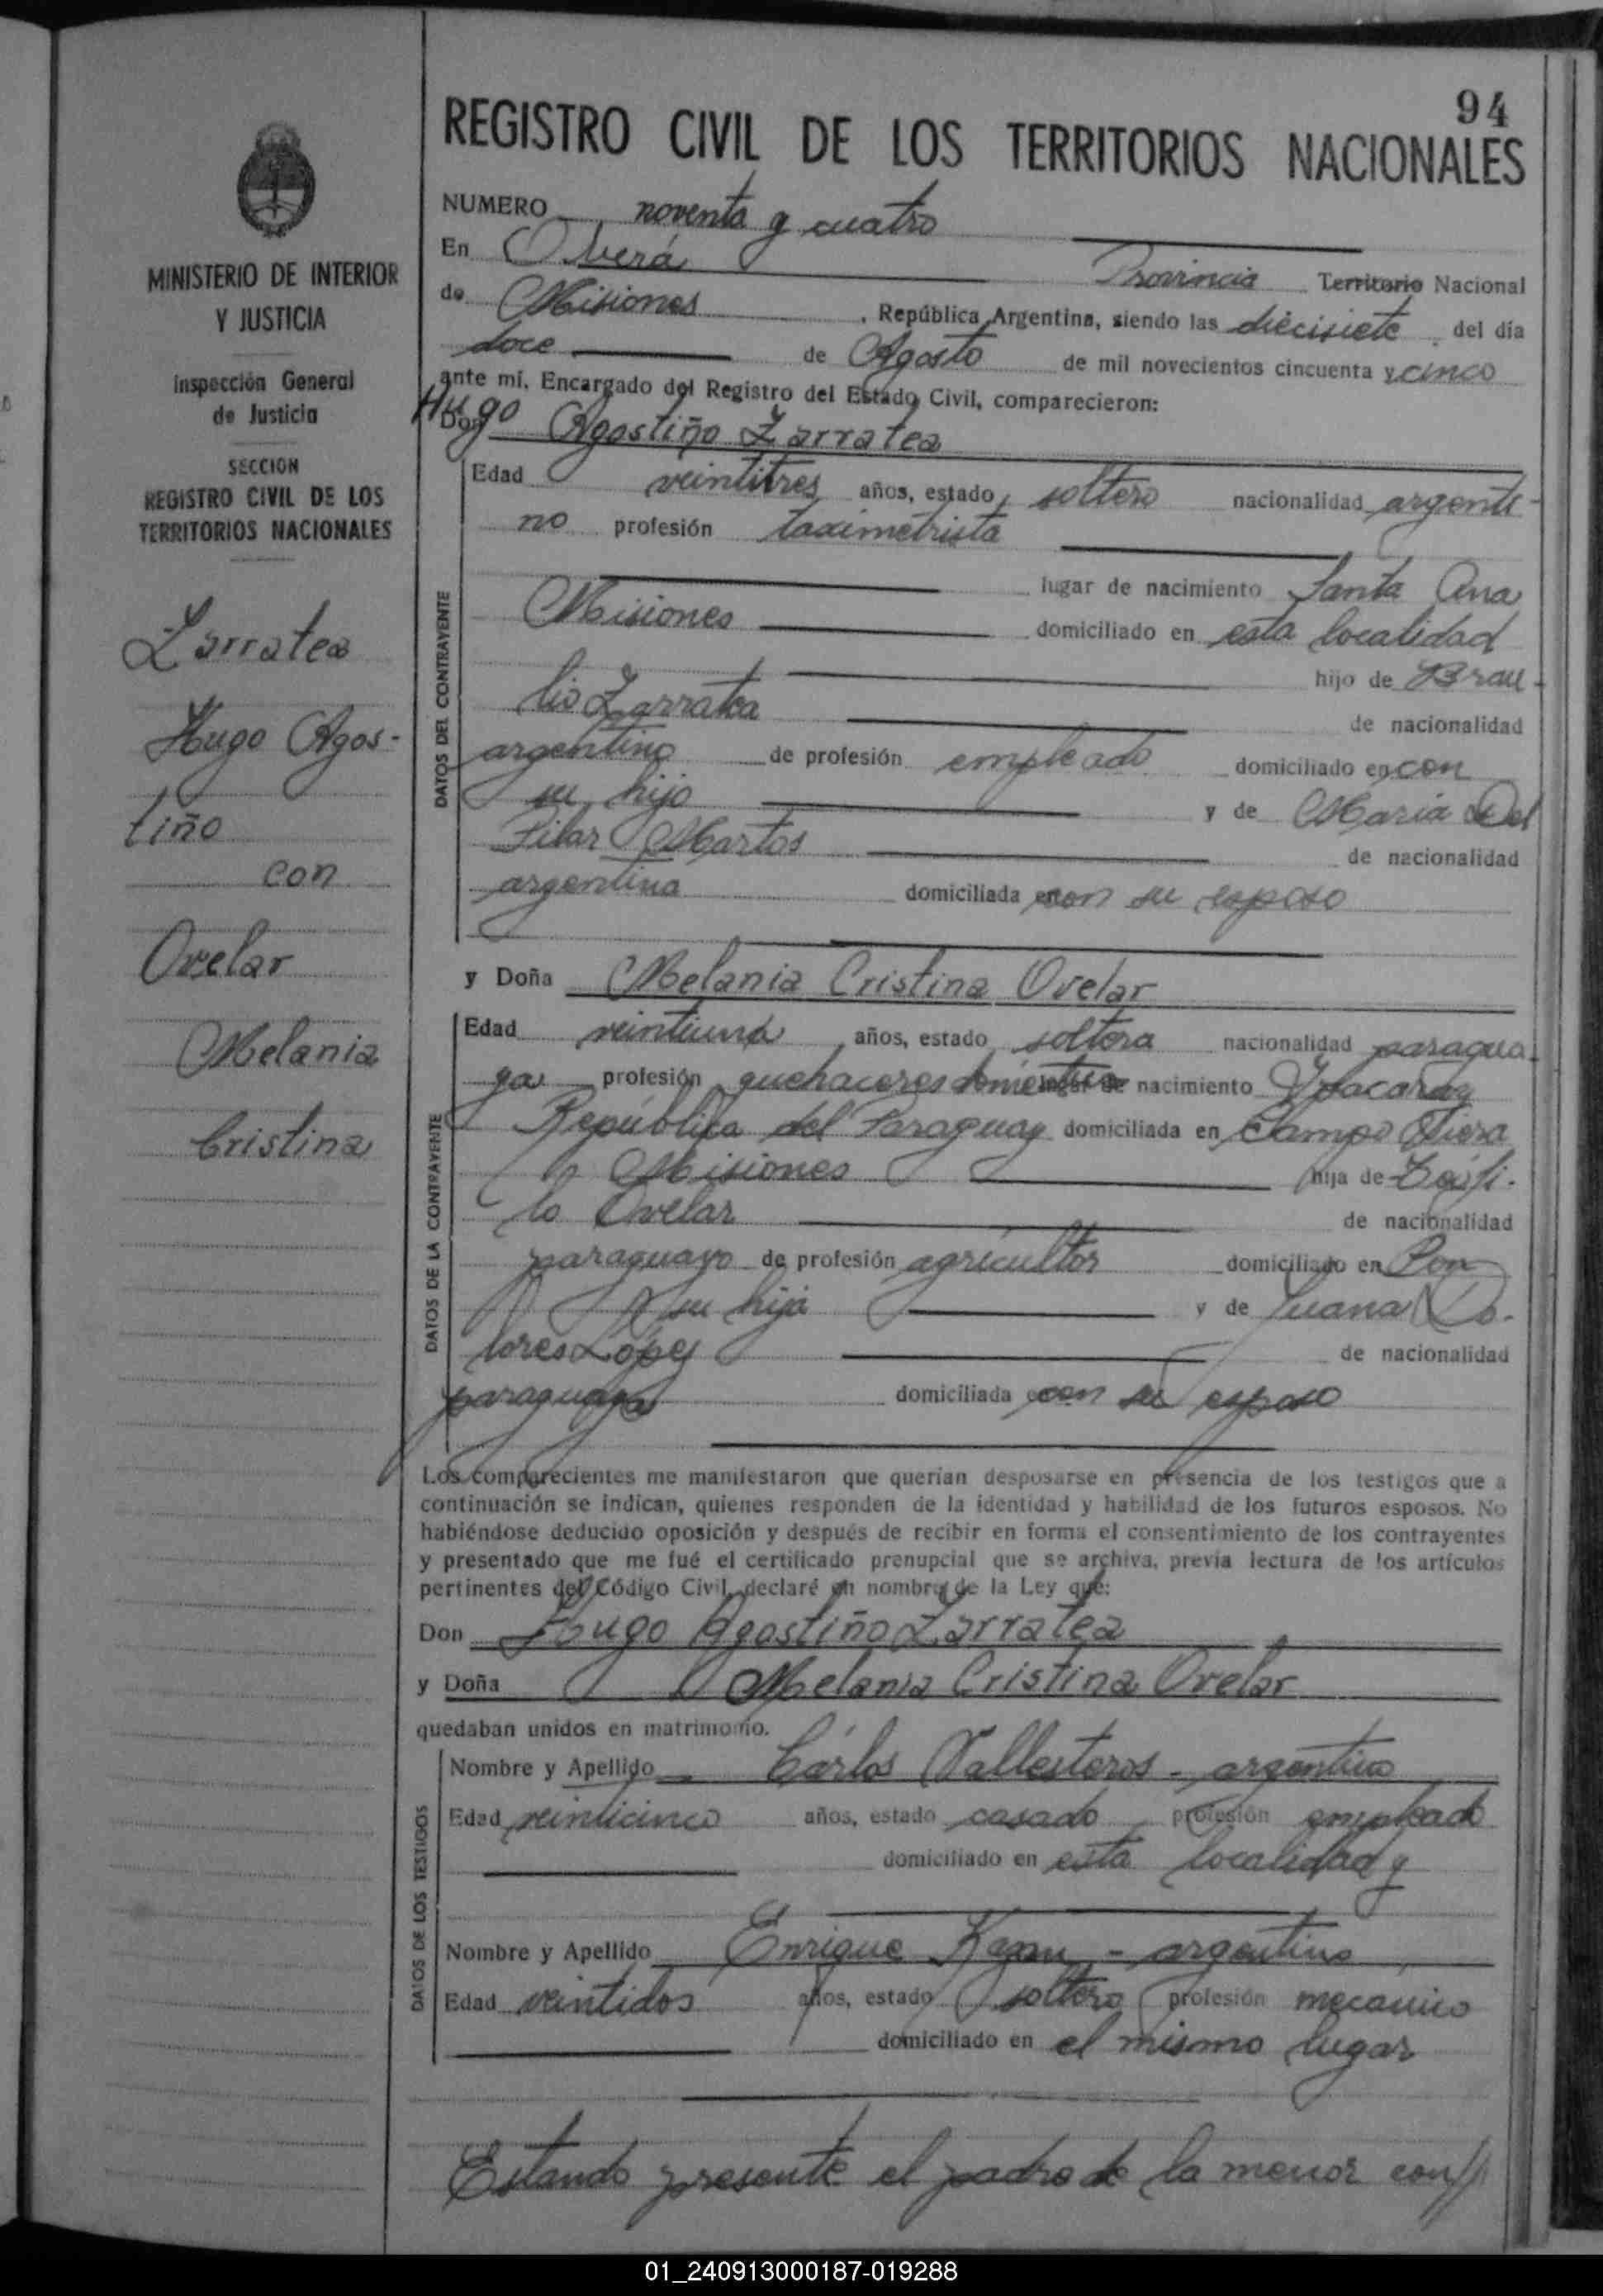 94
REGISTRO CIVIL DE LOS TERRITORIOS NACIONALES
MINISTERIO DE INTERIOR
Y JUSTICIA
Inspección General
de Justicia
SECCION
REGISTRO CIVIL DE LOS
TERRITORIOS NACIONALES
Zarratea
Hugo Agos-
tiño
con
Ovelar
Melania
Cristina
NUMERO noventa y cuatro
En Oberá Provincia Territorio Nacional
de Misiones, República Argentina, siendo las diecisiete del día
doce de Agosto de mil novecientos cincuenta y cinco
ante mí, Encargado del Registro del Estado Civil, comparecieron:
Don Hugo Agostiño Zarratea
DATOS DEL CONTRAYENTE
Edad veintitres años, estado soltero nacionalidad argenti-
no profesión taximetrista
lugar de nacimiento Santa Ana
Misiones domiciliado en esta localidad
hijo de Brau-
lio Zarratea de nacionalidad
argentino de profesión empleado domiciliado en con
su hijo y de Maria Del
Pilar Martos de nacionalidad
argentina domiciliada en con su esposo
y Doña Melania Cristina Ovelar
DATOS DE LA CONTRAYENTE
Edad veintiuna años, estado soltera nacionalidad paragua-
ya profesión quehaceres domésticos lugar de nacimiento
República del Paraguay domiciliada en Campo Viera
Misiones hija de Teófi-
lo Ovelar de nacionalidad
paraguayo de profesión agricultor domiciliado en Con
su hija y de Juana Do-
lores López de nacionalidad
paraguaya domiciliada en con su esposo
Los comparecientes me manifestaron que querían desposarse en presencia de los testigos que a
continuación se indican, quienes responden de la identidad y habilidad de los futuros esposos. No
habiéndose deducido oposición y después de recibir en forma el consentimiento de los contrayentes
y presentado que me fué el certificado prenupcial que se archiva, previa lectura de los artículos
pertinentes del Código Civil, declaré en nombre de la Ley que:
Don Hugo Agostiño Zarratea
y Doña Melania Cristina Ovelar
quedaban unidos en matrimonio.
DATOS DE LOS TESTIGOS
Nombre y Apellido Cárlos Vallesteros - argentino
Edad veinticinco años, estado casado profesión empleado
domiciliado en esta localidad y
Nombre y Apellido Enrique - argentino
Edad veintidos años, estado soltero profesión mecanico
domiciliado en el mismo lugar
Estando presente el padre de la menor conf//
01_240913000187-019288